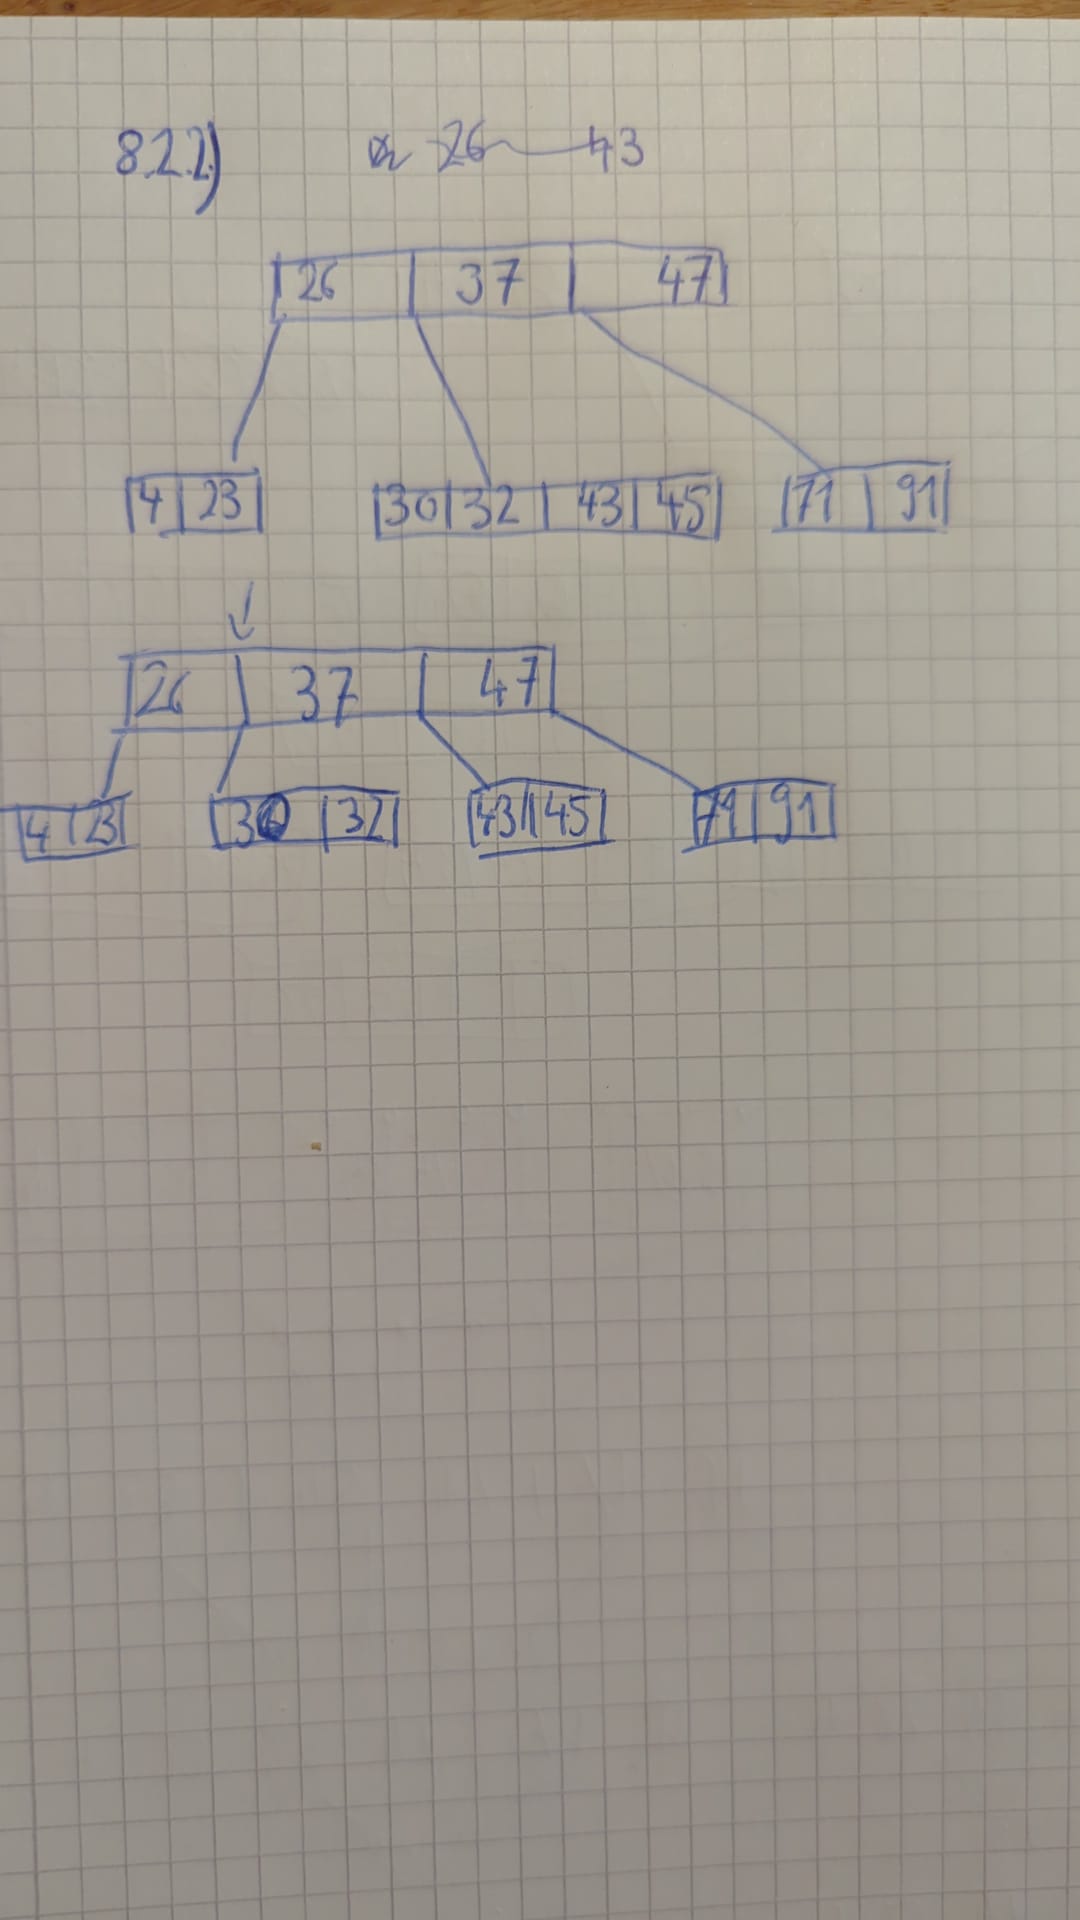 8.2.2)
26 43
26 37 47
4 23 30 32 43 45 71 91
26 37 47
4 23 30 32 43 45 71 91